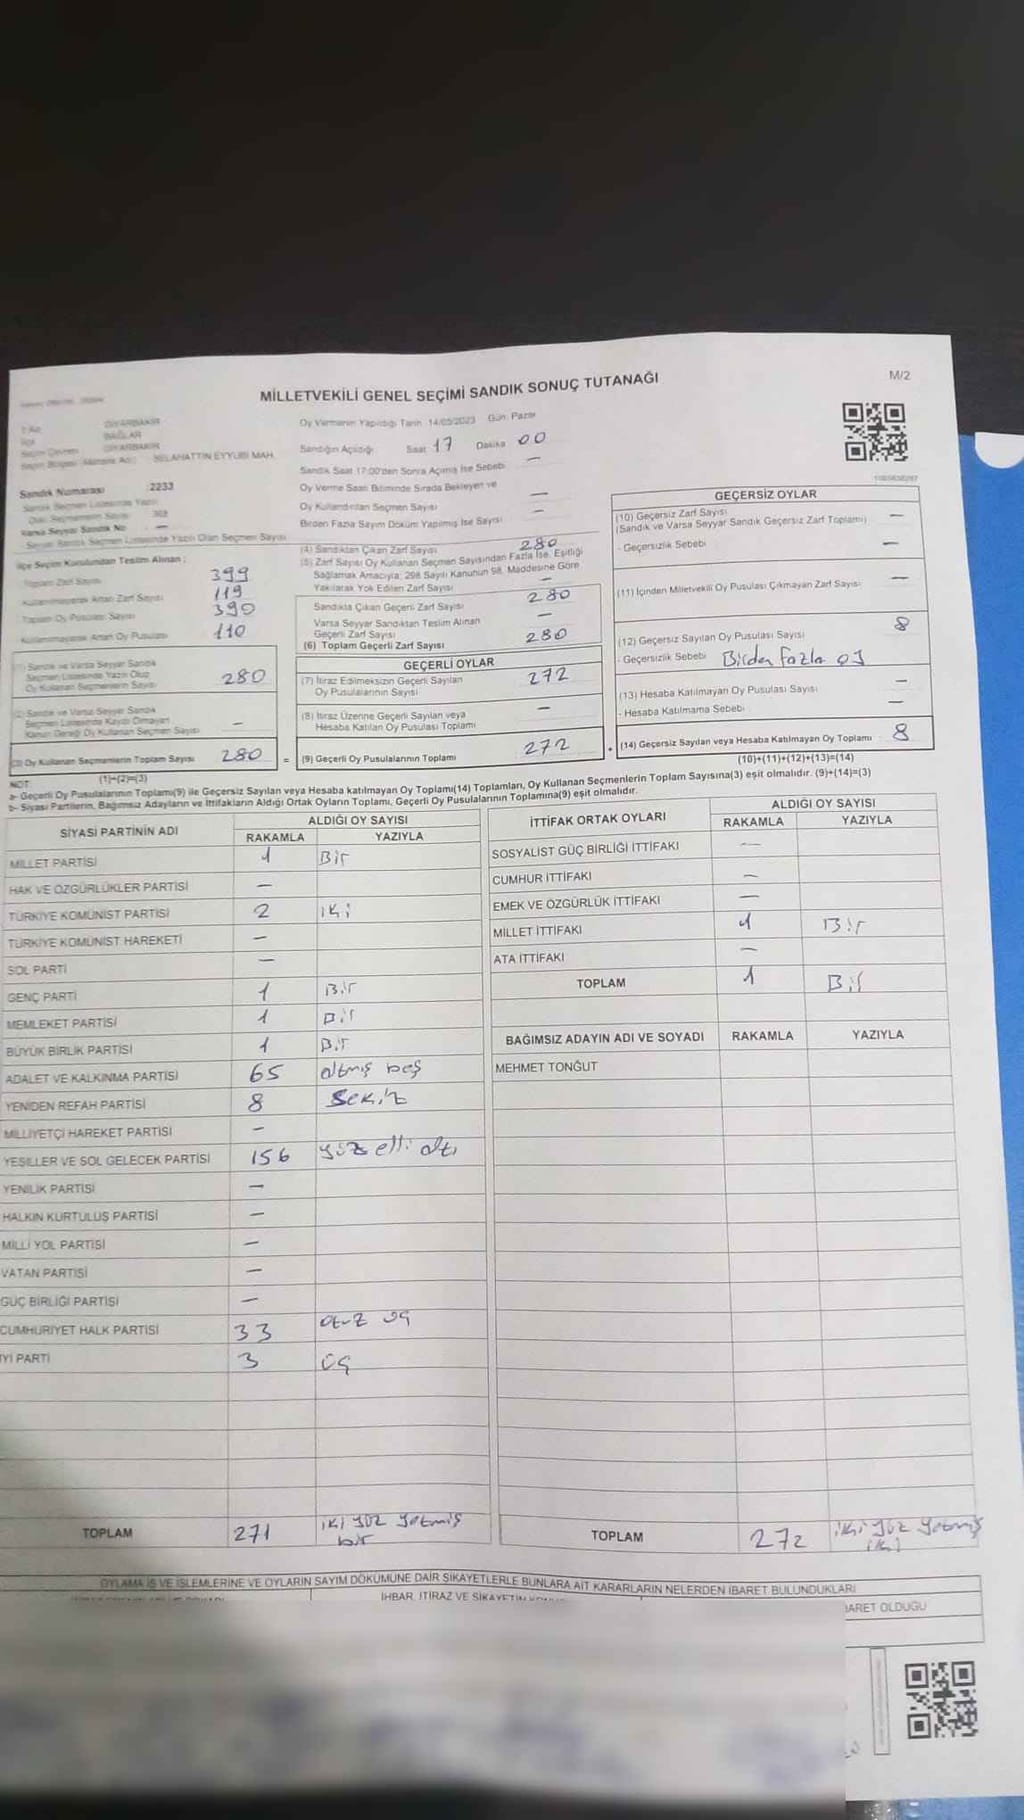 MİLLETVEKİLİ GENEL SEÇİMİ SANDIK SONUÇ TUTANAĞI
M/2
İlçe BAĞLAR
Seçim Çevresi DİYARBAKIR
SELAHATTİN EYYUBİ MAH.
Sandık Numarası :2233
Sandık Seçmen Listesinde Yazılı
Olan Seçmenlerin Sayısı
Varsa Seyyar Sandık No —
Seyyar Sandık Seçmen Listesinde Yazılı Olan Seçmen Sayısı
Oy Vermenin Yapıldığı Tarih 14/05/2023 Gün: Pazar
Sandığın Açıldığı Saat 17 Dakika 00
Sandık Saat 17:00'den Sonra Açılmış İse Sebebi —
Oy Verme Saati Bitiminde Sırada Bekleyen ve
Oy Kullandırılan Seçmen Sayısı —
Birden Fazla Sayım Döküm Yapılmış İse Sayısı —
İlçe Seçim Kurulundan Teslim Alınan ;
Toplam Zarf Sayısı 399
Kullanılmayarak Artan Zarf Sayısı 119
Toplam Oy Pusulası Sayısı 390
Kullanılmayarak Artan Oy Pusulası 110
(1) Sandık ve Varsa Seyyar Sandık
Seçmen Listesinde Yazılı Olup
Oy Kullanan Seçmenlerin Sayısı 280
(2) Sandık ve Varsa Seyyar Sandık
Seçmen Listesinde Kaydı Olmayan
Kanun Gereği Oy Kullanan Seçmen Sayısı —
(3) Oy Kullanan Seçmenlerin Toplam Sayısı 280
(1)+(2)=(3)
(4) Sandıktan Çıkan Zarf Sayısı 280
(5) Zarf Sayısı Oy Kullanan Seçmen Sayısından Fazla İse, Eşitliği
Sağlamak Amacıyla; 298 Sayılı Kanunun 98. Maddesine Göre
Yakılarak Yok Edilen Zarf Sayısı —
Sandıkta Çıkan Geçerli Zarf Sayısı 280
Varsa Seyyar Sandıktan Teslim Alınan
Geçerli Zarf Sayısı —
(6) Toplam Geçerli Zarf Sayısı 280
GEÇERLİ OYLAR
(7) İtiraz Edilmeksizin Geçerli Sayılan
Oy Pusulalarının Sayısı 272
(8) İtiraz Üzerine Geçerli Sayılan veya
Hesaba Katılan Oy Pusulası Toplamı —
= (9) Geçerli Oy Pusulalarının Toplamı 272
GEÇERSİZ OYLAR
(10) Geçersiz Zarf Sayısı
(Sandık ve Varsa Seyyar Sandık Geçersiz Zarf Toplamı) —
- Geçersizlik Sebebi —
(11) İçinden Milletvekili Oy Pusulası Çıkmayan Zarf Sayısı —
(12) Geçersiz Sayılan Oy Pusulası Sayısı 8
- Geçersizlik Sebebi Birden Fazla oy
(13) Hesaba Katılmayan Oy Pusulası Sayısı —
- Hesaba Katılmama Sebebi —
+ (14) Geçersiz Sayılan veya Hesaba Katılmayan Oy Toplamı 8
(10)+(11)+(12)+(13)=(14)
NOT:
a- Geçerli Oy Pusulalarının Toplamı(9) ile Geçersiz Sayılan veya Hesaba katılmayan Oy Toplamı(14) Toplamları, Oy Kullanan Seçmenlerin Toplam Sayısına(3) eşit olmalıdır. (9)+(14)=(3)
b- Siyasi Partilerin, Bağımsız Adayların ve İttifakların Aldığı Ortak Oyların Toplamı, Geçerli Oy Pusulalarının Toplamına(9) eşit olmalıdır.
SİYASİ PARTİNİN ADI
ALDIĞI OY SAYISI
RAKAMLA YAZIYLA
MİLLET PARTİSİ 1 Bir
HAK VE ÖZGÜRLÜKLER PARTİSİ —
TÜRKİYE KOMÜNİST PARTİSİ 2 iki
TÜRKİYE KOMÜNİST HAREKETİ —
SOL PARTİ —
GENÇ PARTİ 1 Bir
MEMLEKET PARTİSİ 1 Bir
BÜYÜK BİRLİK PARTİSİ 1 Bir
ADALET VE KALKINMA PARTİSİ 65 altmış beş
YENİDEN REFAH PARTİSİ 8 Sekiz
MİLLİYETÇİ HAREKET PARTİSİ —
YEŞİLLER VE SOL GELECEK PARTİSİ 156 yüz elli altı
YENİLİK PARTİSİ —
HALKIN KURTULUŞ PARTİSİ —
MİLLİ YOL PARTİSİ —
VATAN PARTİSİ —
GÜÇ BİRLİĞİ PARTİSİ —
CUMHURİYET HALK PARTİSİ 33 otuz üç
İYİ PARTİ 3 üç
TOPLAM 271 iki yüz yetmiş
bir
İTTİFAK ORTAK OYLARI
ALDIĞI OY SAYISI
RAKAMLA YAZIYLA
SOSYALİST GÜÇ BİRLİĞİ İTTİFAKI —
CUMHUR İTTİFAKI —
EMEK VE ÖZGÜRLÜK İTTİFAKI —
MİLLET İTTİFAKI 1 Bir
ATA İTTİFAKI —
TOPLAM 1 Bir
BAĞIMSIZ ADAYIN ADI VE SOYADI RAKAMLA YAZIYLA
MEHMET TONĞUT
TOPLAM 272 iki yüz yetmiş
iki
OYLAMA İŞ VE İŞLEMLERİNE VE OYLARIN SAYIM DÖKÜMÜNE DAİR ŞİKAYETLERLE BUNLARA AİT KARARLARIN NELERDEN İBARET BULUNDUKLARI
İHBAR, İTİRAZ VE ŞİKAYETİN
BARET OLDUĞU